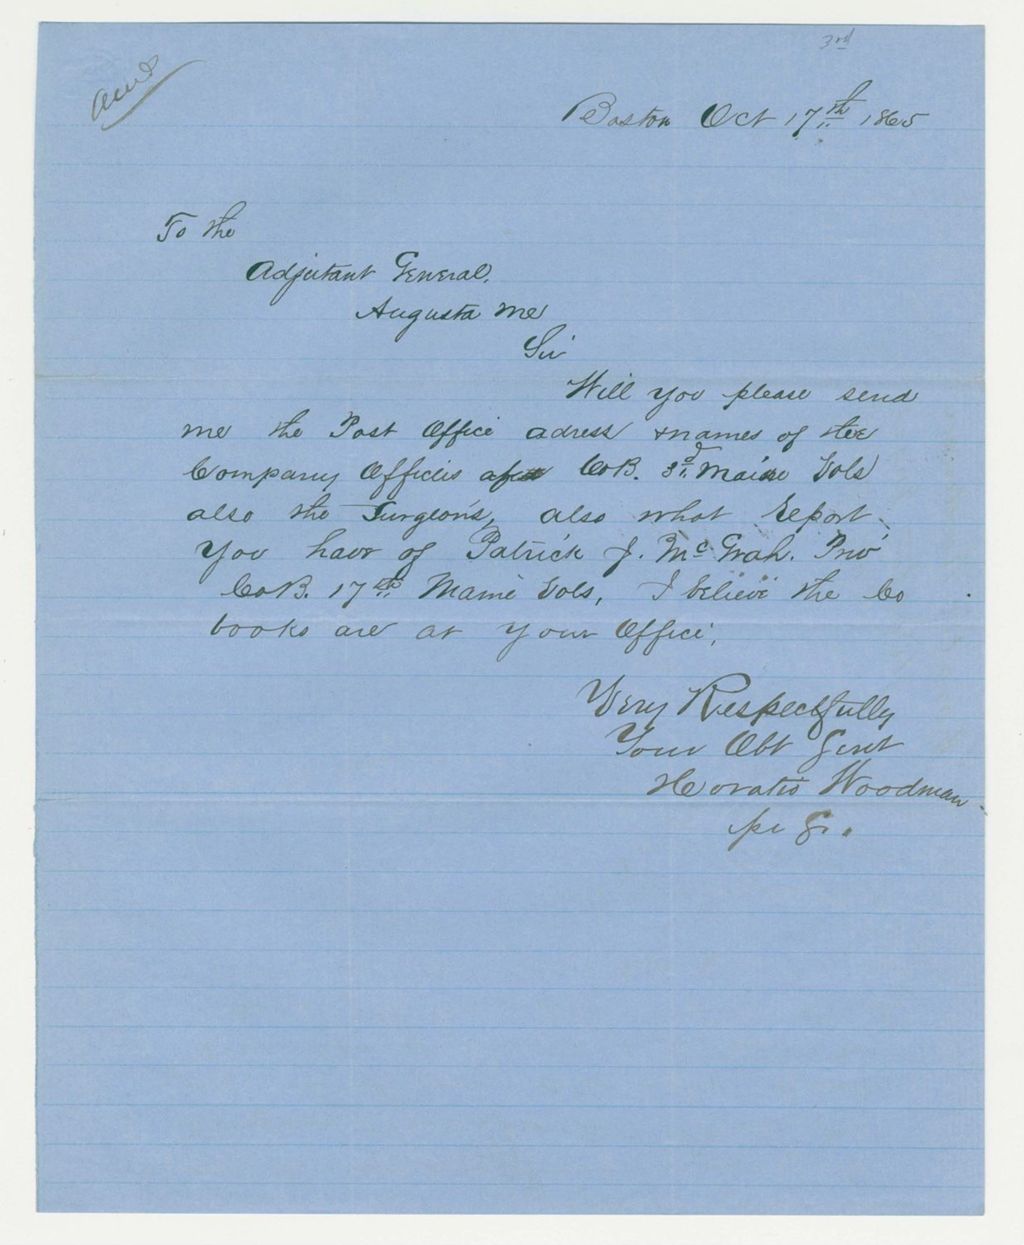 3rd
Boston Oct 17th 1865
To the
Adjutant General,
Augusta Me
Sir
Will you please send
me the Post Office adress & names of the
Company Officiers of Co B. 3d. Maine Vols
also the Surgeons, also what report
You have of Patrick J. McGrah. Priv
Co B. 17th Maine Vols, I believe the Co
books are at your Office,
Very Respectfully
Your Obt Servt
Horatio Woodman
per